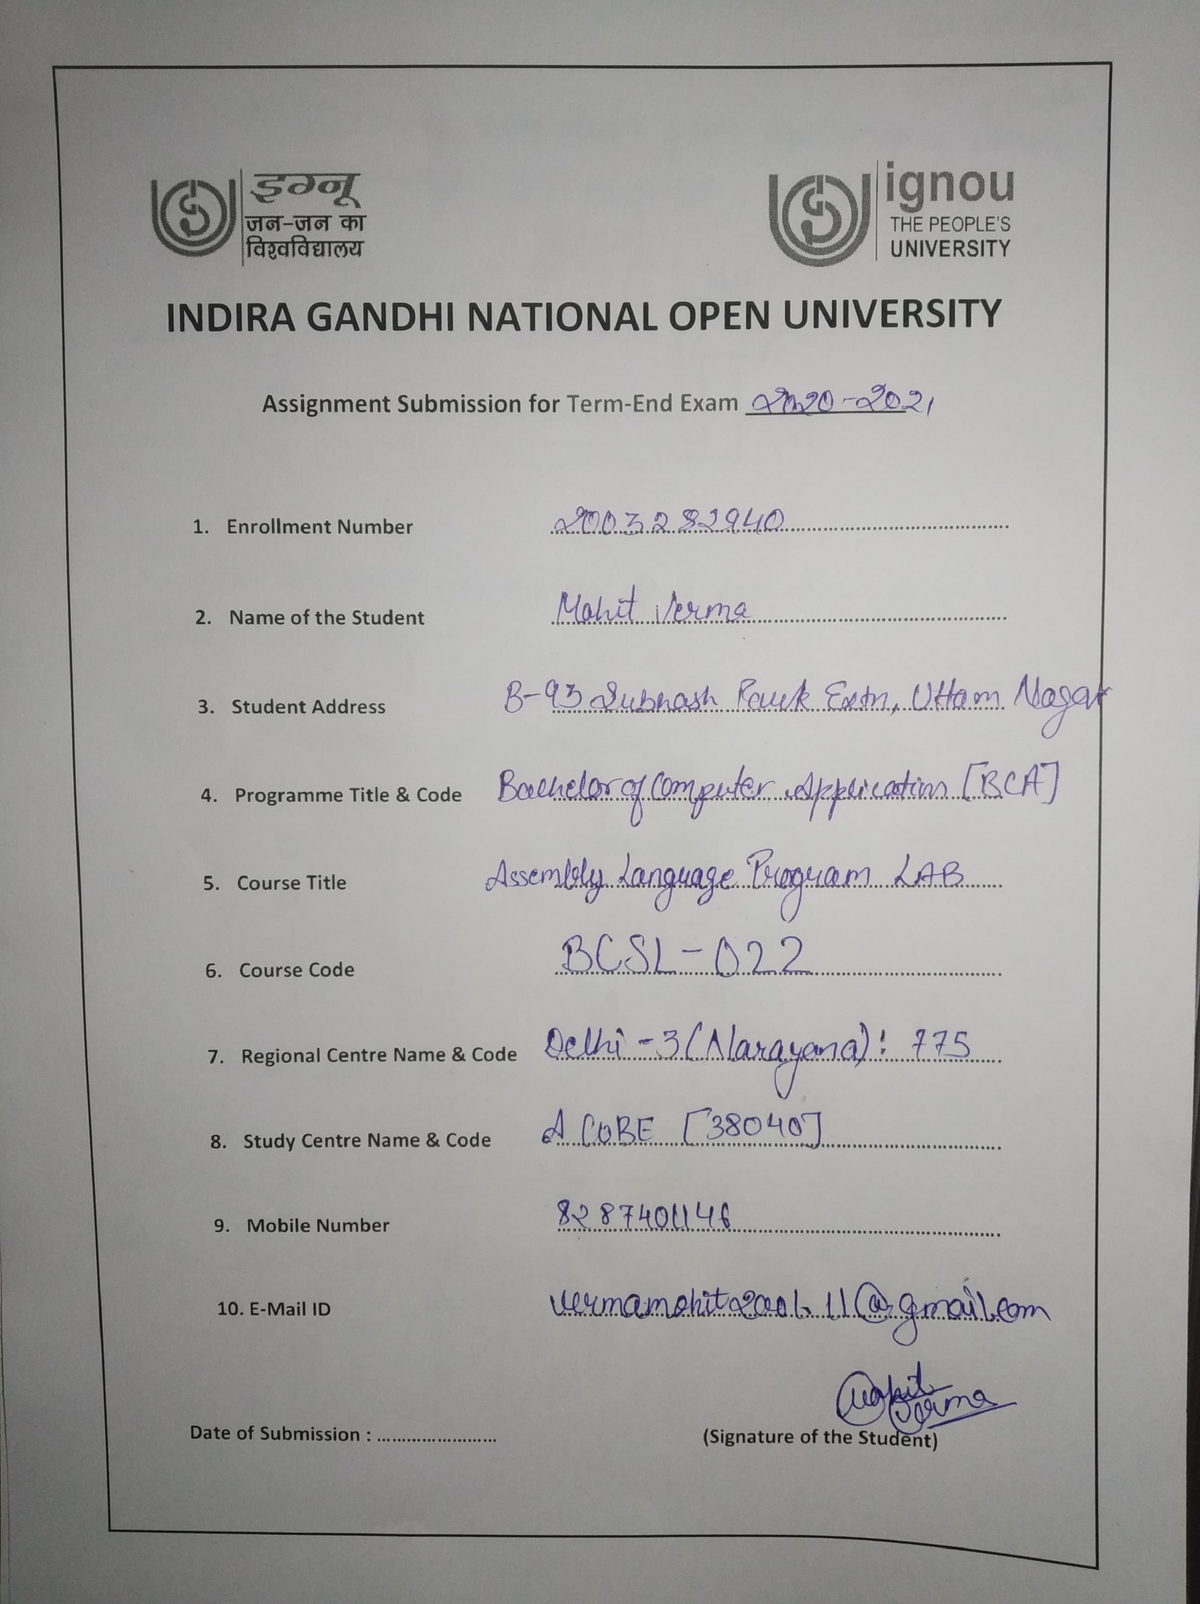 इग्नू
जन-जन का
विश्वविद्यालय
ignou
THE PEOPLE'S
UNIVERSITY
INDIRA GANDHI NATIONAL OPEN UNIVERSITY
Assignment Submission for Term-End Exam 2020-2021
1. Enrollment Number 2003282940
2. Name of the Student Mohit Verma
3. Student Address B-93 Subhash Park Extn, Uttam Nagar
4. Programme Title & Code Bachelor of Computer Application [BCA]
5. Course Title Assembly Language Program LAB
6. Course Code BCSL-022
7. Regional Centre Name & Code Delhi-3 (Narayana): 775
8. Study Centre Name & Code ACOBE [38040]
9. Mobile Number 8287401146
10. E-Mail ID vermamohit2001.11@gmail.com
Mohit
Verma
Date of Submission : ........................ (Signature of the Student)